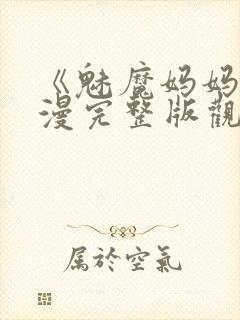 《魅魔妈妈
漫完整版觀
属於空氣